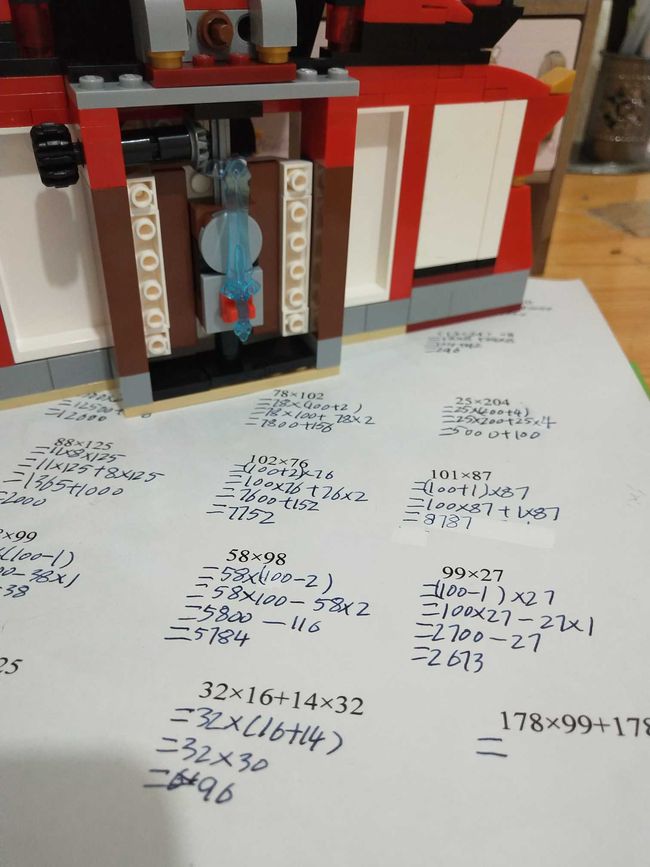 78×102
=78×(100+2)
=78×100+78×2
=7800+156
25×204
=25×(200+4)
=25×200+25×4
=5000+100
88×125
=11×8×125
=11×125+8×125
=1565+1000
=2000
102×76
=(100+2)×76
=100×76+76×2
=7600+152
=7752
101×87
=(100+1)×87
=100×87+1×87
=8787
×99
(100-1)
-38×1
-38
58×98
=58×(100-2)
=58×100-58×2
=5800-116
=5784
99×27
=(100-1)×27
=100×27-27×1
=2700-27
=2673
25
32×16+14×32
=32×(16+14)
=32×30
=96
178×99+178
=